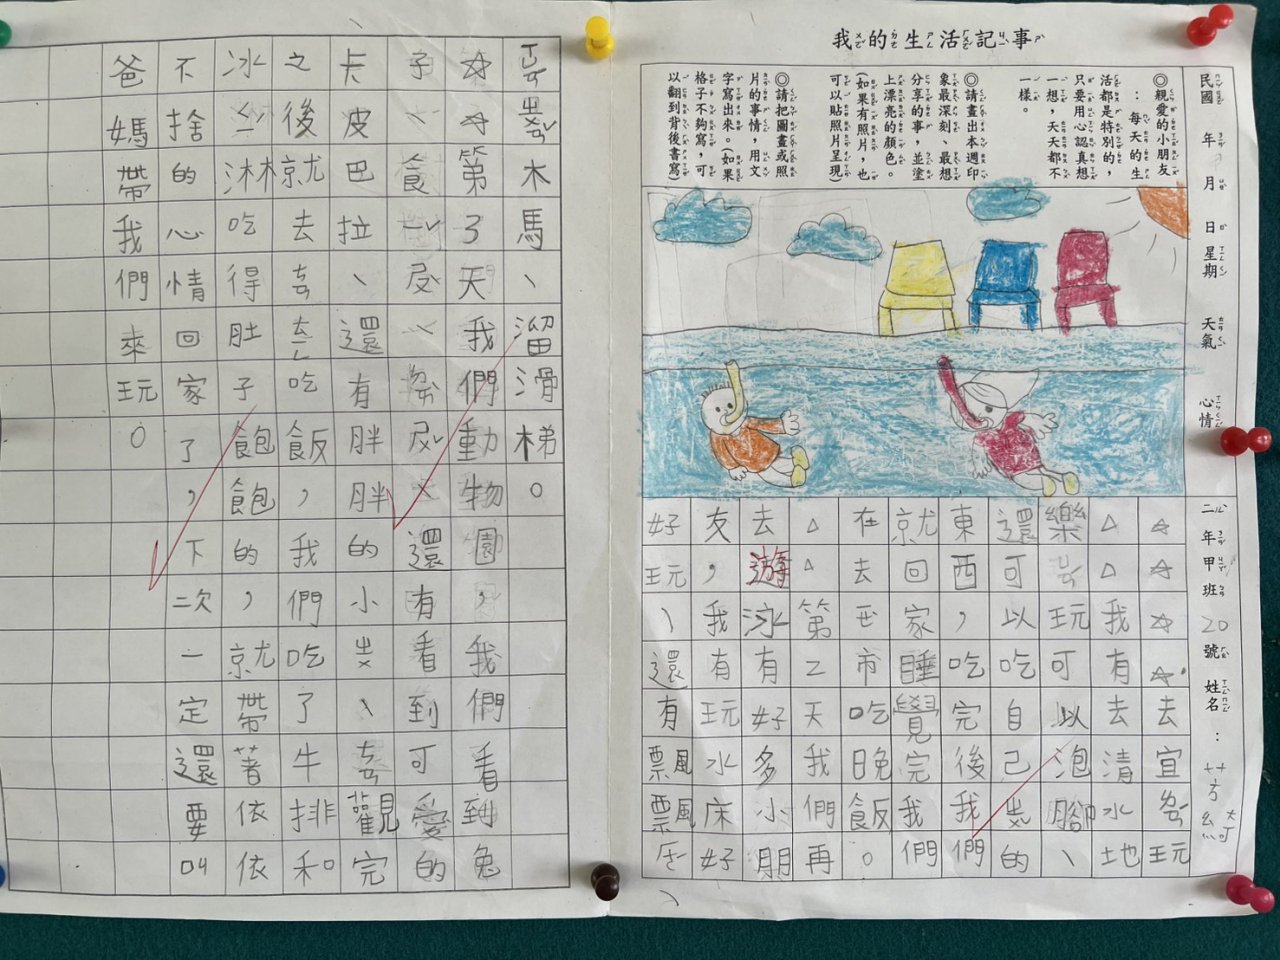 我的生活記事
◎親愛的小朋友
：每天的生
活都是特別的，
只要用心認真想
一想，天天都不
一樣。
◎請畫出本週印
象最深刻、最想
分享的事，並塗
上漂亮的顏色。
(如果有照片，也
可以貼照片呈現)
◎請把圖畫或照
片的事情，用文
字寫出來。(如果
格子不夠寫，可
以翻到背後書寫
民國 年 月 日 星期 天氣 心情
二年甲班20號 姓名：
☆☆☆☆去宜ㄌㄢˊ玩
△△我有去清水地
樂ㄩㄢˊ玩可以泡腳、
還可以吃自己煮的
東西，吃完後我們
就回家睡覺完我們
在去ㄝ市吃晚飯。
△△第二天我們再
去遊泳有好多小朋
友，我有玩水床好
好玩、還有票風票風
木馬、溜滑梯。
☆☆第了天我們動物園，我們看到兔
子還有看到可愛的
卡皮巴拉、還有胖胖的小ㄓㄨ、觀完
之後就去吃飯，我們吃了牛排和
冰沐吃得肚子飽飽的，就帶著依依
不捨的心情回家了，下二次一定還要叫
爸媽帶我們來玩。